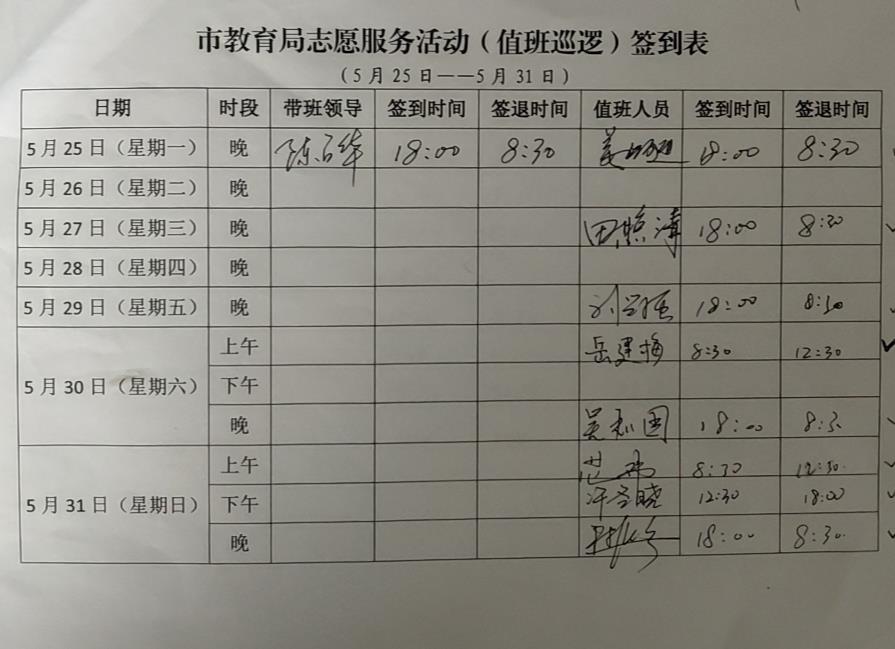 市教育局志愿服务活动（值班巡逻）签到表
（5月25日——5月31日）
日期 时段 带班领导 签到时间 签退时间 值班人员 签到时间 签退时间
5月25日（星期一） 晚 18:00 8:30 18:00 8:30
5月26日（星期二） 晚
5月27日（星期三） 晚 18:00 8:30
5月28日（星期四） 晚
5月29日（星期五） 晚 18:00 8:30
5月30日（星期六） 上午 岳建梅 8:30 12:30
下午
晚 吴利国 18:00 8:3
5月31日（星期日） 上午 8:30 12:30
下午 12:30 18:00
晚 18:00 8:30